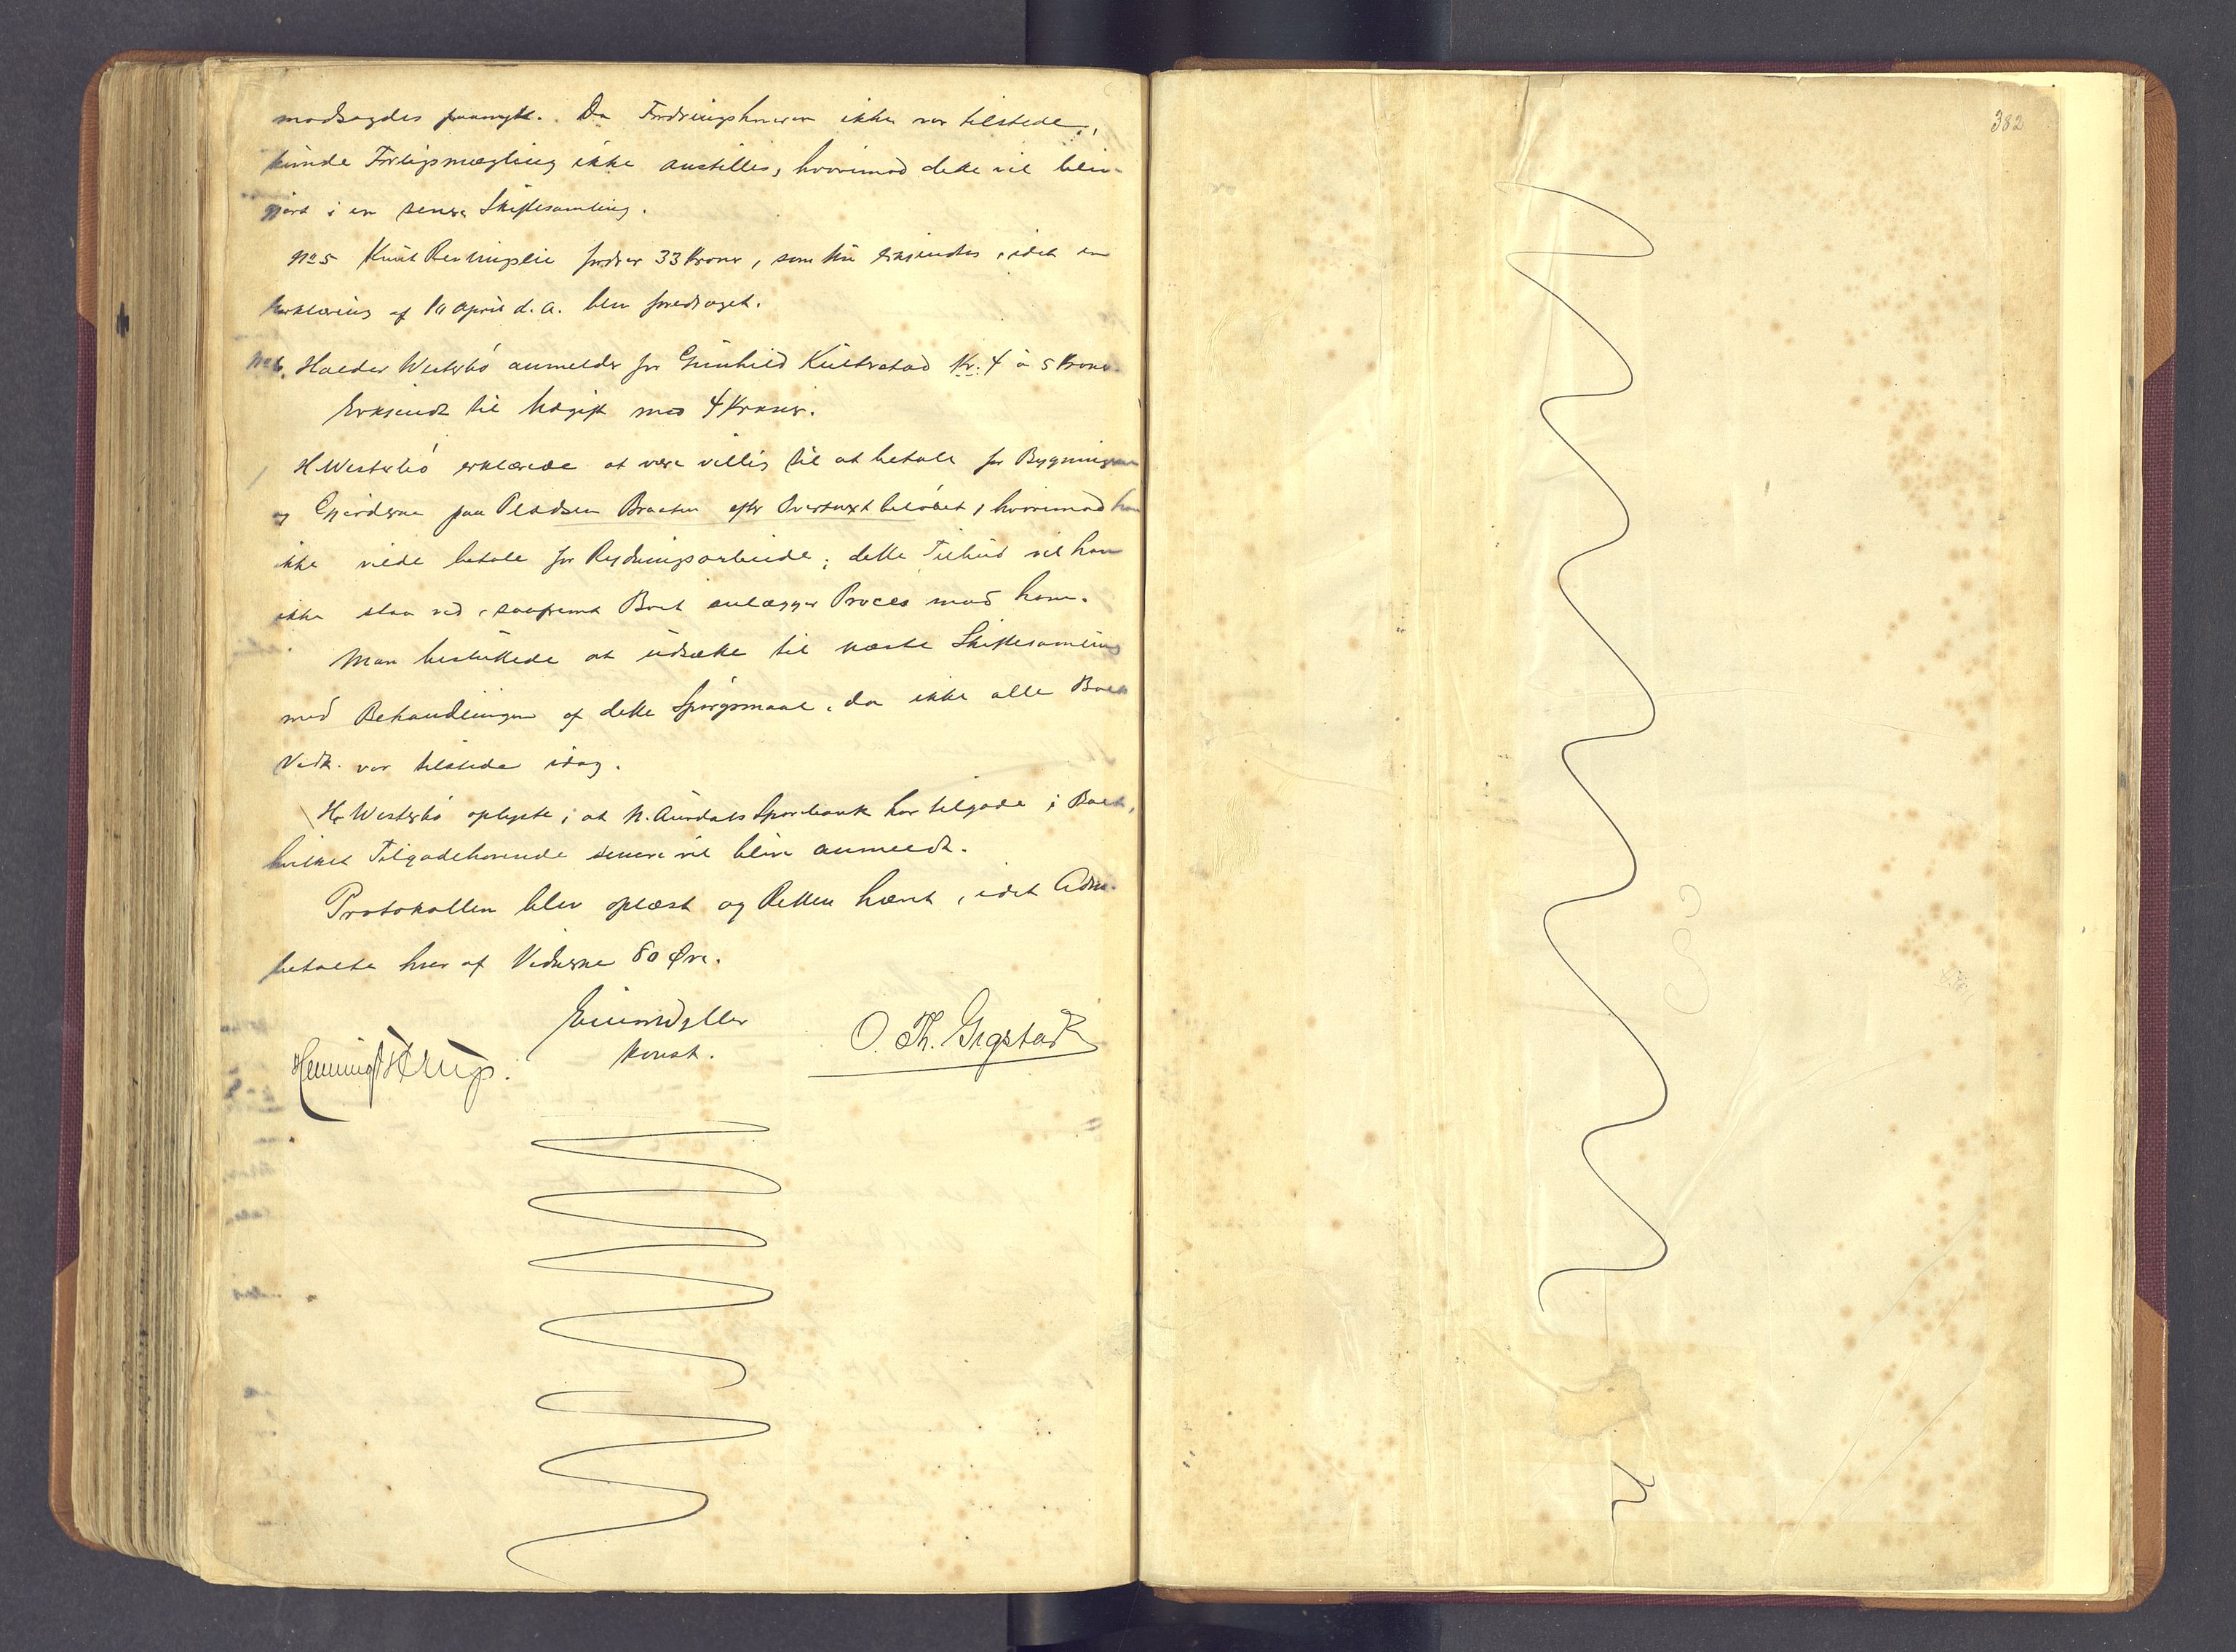 modsagdes paanytt. Da Fordringshaveren ikke var tilstede,
kunde Forligsmægling ikke anstilles, hvorimod dette vil bliv
gjort i en senere Skiftesamling.
No 5 Knut fordrer 33 Kroner, som erkjendtes, idet en
Erklæring af april d. A. blev fremlaget.
No 6. Halder Westerbö anmelder for Gunhild Kr. 4 a 5 Kroner
Erkjendt til Udgift med 4 Kroner.
H. Westerbö erklærede at være villig til at betale for Bygningerne
og Gjærderne paa Pladsen Braaten efter Overtaxtbelöbet, hvorimod han
ikke vilde betale for Rydningsarbeide; dette Tilbud vil han
ikke staa ved, saafremt Boet anlægger Proces mod ham.
Man besluttede at udsætte til næste Skiftesamling
med Behandlingen af dette Spörgsmaal, da ikke alle Boets
Vedk. var tilstede idag.
H. Westerbö oplyste, at N. Aurdals Sparebank har tilgode i Boet,
hvilket Tilgodehavende senere vil blive anmeldt.
Protokollen blev oplæst og Retten hævet, idet Adm.
betalte hver af Vidnerne 80 Øre.
konst.
O. Th. Grgstad
Henning
382